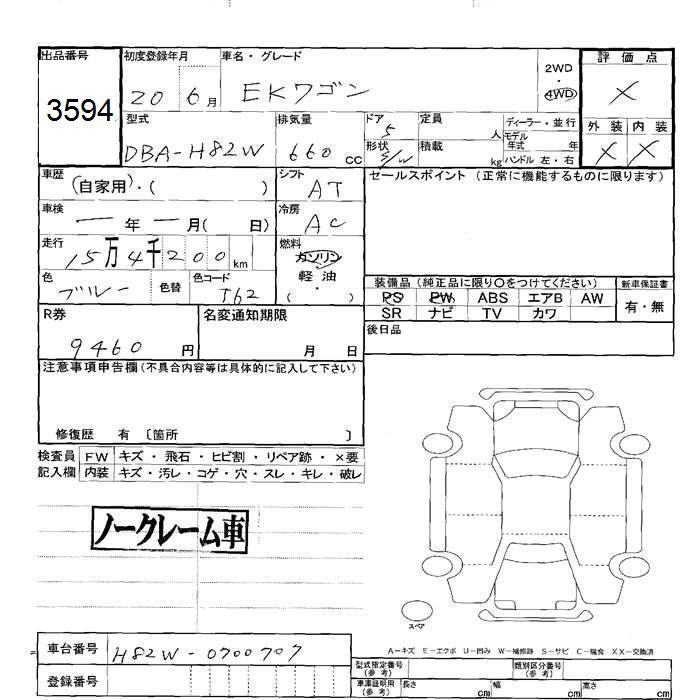 出品番号 初度登録年月 車名・グレード 評価点
3594 20 6月 EKワゴン 2WD・4WD X
型式 排気量 ドア 5 定員 人 ディーラー・並行 外装 内装
DBA-H82W 660cc 形状 S/W 積載 kg モデル年式 年 ハンドル 左・右 X X
車歴 (自家用)・( ) シフト AT セールスポイント (正常に機能するものに限ります)
車検 ー年ー月( 日) 冷房 AC
走行 15万4千200km 燃料 ガソリン・軽油・( )
色 ブルー 色替 色コード T62
装備品 (純正品に限り〇をつけてください) 新車保証書
PS PW ABS エアB AW 有・無
SR ナビ TV カワ
R券 9460円 名変通知期限 月 日 後日品
注意事項申告欄(不具合内容等は具体的に記入して下さい)
修復歴 有 〔箇所 〕
検査員 FW キズ・飛石・ヒビ割・リペア跡・×要
記入欄 内装 キズ・汚レ・コゲ・穴・スレ・キレ・破レ
ノークレーム車
スペア
A-キズ E-エクボ U-凹み W-補修跡 S-サビ C-腐食 XX-交換済
車台番号 H82W-0700707 型式指定番号(参考) 類別区分番号(参考)
登録番号 車庫証明用(参考) 長さ cm 幅 cm 高さ cm